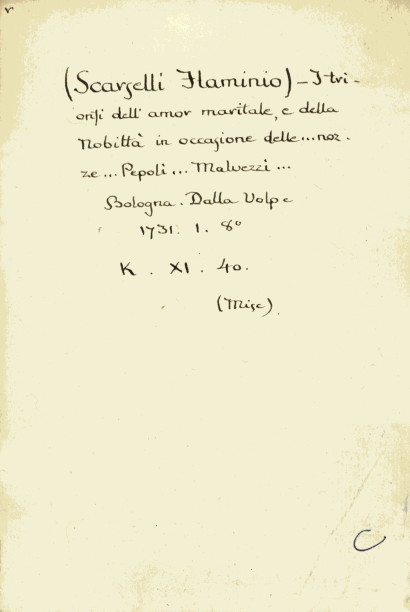 (Scarselli Flaminio) – I tri-
onfi dell' amor maritale, e della
Nobiltà in occasione delle ... noz-
ze ... Pepoli ... Malvezzi ...
Bologna. Dalla Volpe
1731. 1. 8°
K. XI. 40.
(Misc).
C